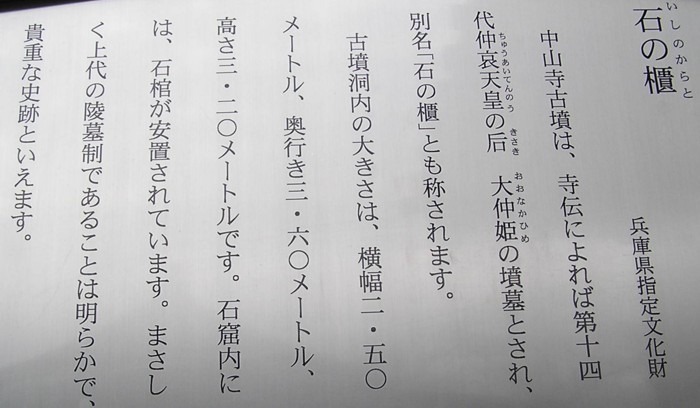 いしのからと
石の櫃
兵庫県指定文化財
中山寺古墳は、寺伝によれば第十四
代仲哀天皇の后　大仲姫の墳墓とされ、
ちゅうあいてんのう　きさき　おおなかひめ
別名「石の櫃」とも称されます。
古墳洞内の大きさは、横幅二・五〇
メートル、奥行き三・六〇メートル、
高さ三・二〇メートルです。石窟内に
は、石棺が安置されています。まさし
く上代の陵墓制であることは明らかで、
貴重な史跡といえます。